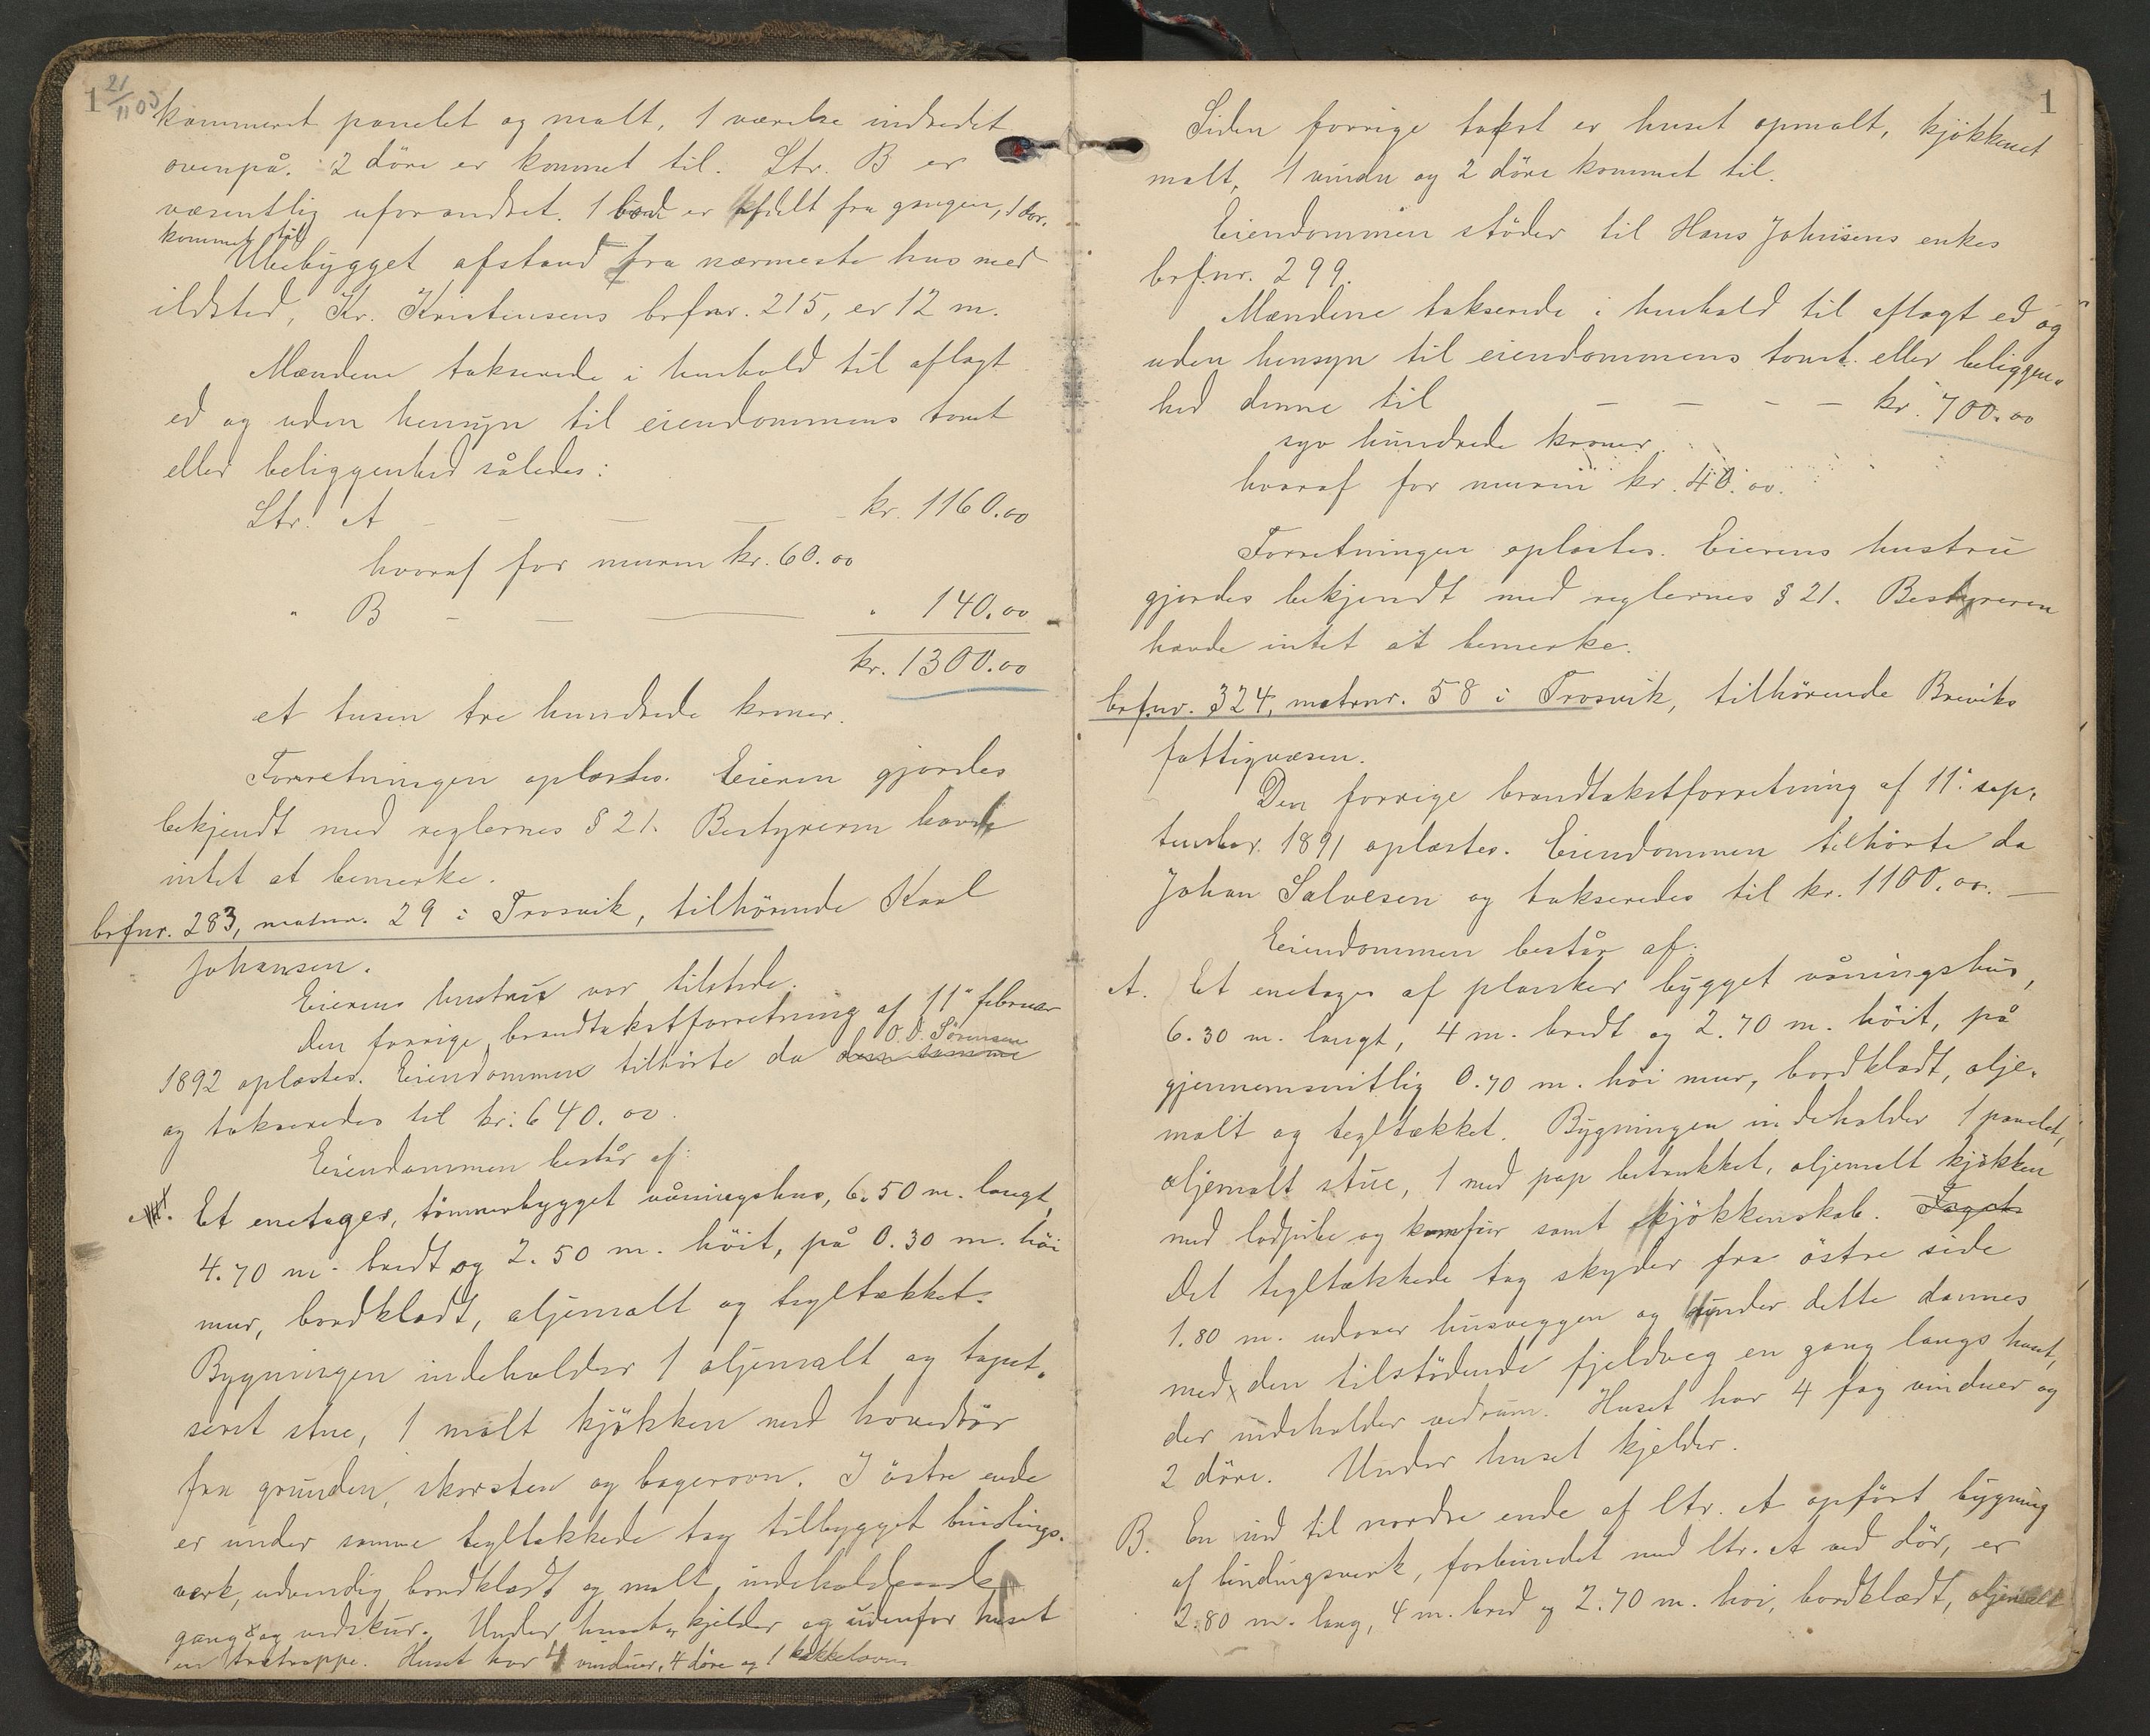 1 21/11 03
kammeret panelet og malt, 1 værelse indredet
ovenpå. 2 döre er kommet til. Ltr. B er
væsentlig uforandret. 1 bod er afdelt fra gangen, 1 dör.
kommet til
Ubebygget afstand fra nærmeste hus med
ildsted, Kr. Kristensens brfnr. 215, er 12 m.
Mændene takserede i henhold til aflagt
ed og uden hensyn til eiendommens tomt
eller beliggenhed således:
Ltr. A – – – – kr. 1160.00
hvoraf for muren kr. 60.00
" B – – – " 140.00
kr. 1300.00
et tusen tre hundrede kroner.
Forretningen oplæstes. Eieren gjordes
bekjendt med reglernes § 21. Bestyreren havde
intet at bemerke.
brfnr. 283, matnr. 29 i Trosvik, tilhörende Karl
Johansen.
Eierens hustru var tilstede.
Den forrige brandtakstforretning af 11te februar
O. D. Sörensen
1892 oplæstes. Eiendommen tilhörte da den samme
og takseredes til kr. 640.00.
Eiendommen består af:
A. Et enetages, tömmerbygget våningshus, 6.50 m. langt,
4.70 m. bredt og 2.50 m. höit, på 0.30 m. höi
mur, bordklædt, oljemalt og tegltækket.
Bygningen indeholder 1 oljemalt og tapet-
seret stue, 1 malt kjökken med hoveddör
fra grunden, skorsten og bagerovn. I östre ende
er under samme tegltækkede tag tilbygget bindings-
værk, udvendig bordklædt og malt, indeholdende
gang og vedskur. Under huset kjelder og udenfor huset
en trætrappe. Huset har 4 vinduer, 4 döre og 1 kakkelovn.
1
Siden forrige takst er huset opmalt, kjökkenet
malt, 1 vindu og 2 döre kommet til.
Eiendommen stöder til Hans Johnsens enkes
brfnr. 299.
Mændene takserede i henhold til aflagt ed og
uden hensyn til eiendommens tomt eller beliggen-
hed denne til – – – – kr. 700.00
syv hundrede kroner.
hvoraf for muren kr. 40.00.
Forretningen oplæstes. Eierens hustru
gjordes bekjendt med reglernes § 21. Bestyreren
havde intet at bemerke.
brfnr. 324, matrnr. 58 i Trosvik, tilhörende Breviks
fattigvæsen.
Den forrige brandtakstforretning af 11te sep-
tember 1891 oplæstes. Eiendommen tilhörte da
Johan Salvesen og takseredes til kr. 1100.00. –
Eiendommen består af:
A. Et enetages af planker bygget våningshus,
6.30 m. langt, 4 m. bredt og 2.70 m. höit, på
gjennemsnitlig 0.70 m. höi mur, bordklædt, olje-
malt og tegltækket. Bygningen indeholder 1 panelet,
oljemalt stue, 1 med pap betrukket, oljemalt kjökken
med lodpibe og komfur samt kjökkenskab. Taget
Det tegltækkede tag skyder fra östre side
1.80 m. udover husveggen og under dette dannes
med den tilstödende fjeldveg en gang langs huset,
der indeholder vedrum. Huset har 4 fag vinduer og
2 döre. Under huset kjelder.
B. En ind til nordre ende af ltr. A opfört bygning
af bindingsverk, forbundet med ltr. A ved dör, er
2.80 m. lang, 4 m. bred og 2.70 m. höi, bordklædt, oljemalt